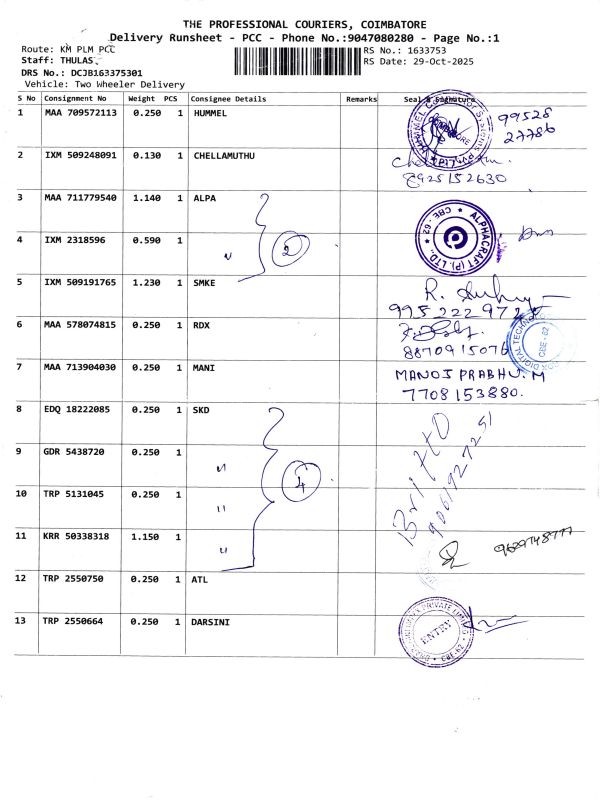 THE PROFESSIONAL COURIERS, COIMBATORE
Delivery Runsheet - PCC - Phone No.:9047080280 - Page No.:1
Route: KM PLM PCC
RS No.: 1633753
Staff: THULAS
RS Date: 29-Oct-2025
DRS No.: DCJB163375301
Vehicle: Two Wheeler Delivery
S No Consignment No Weight PCS Consignee Details Remarks Seal & Signature
1 MAA 709572113 0.250 1 HUMMEL 99528 27786
2 IXM 509248091 0.130 1 CHELLAMUTHU
8925152630
3 MAA 711779540 1.140 1 ALPA
ALPHACRAFT (P) LTD., ★ CBE-62 ★
4 IXM 2318596 0.590 1 〃 2
5 IXM 509191765 1.230 1 SMKE
6 MAA 578074815 0.250 1 RDX
8870915076
DIGITAL TECHNO CBE-62
7 MAA 713904030 0.250 1 MANI MANOJ PRABHU.M
7708153880.
8 EDQ 18222085 0.250 1 SKD
9 GDR 5438720 0.250 1 〃 4
10 TRP 5131045 0.250 1 〃
11 KRR 50338318 1.150 1 〃
12 TRP 2550750 0.250 1 ATL
13 TRP 2550664 0.250 1 DARSINI
PRIVATE LIMITED ENTRY CBE-62